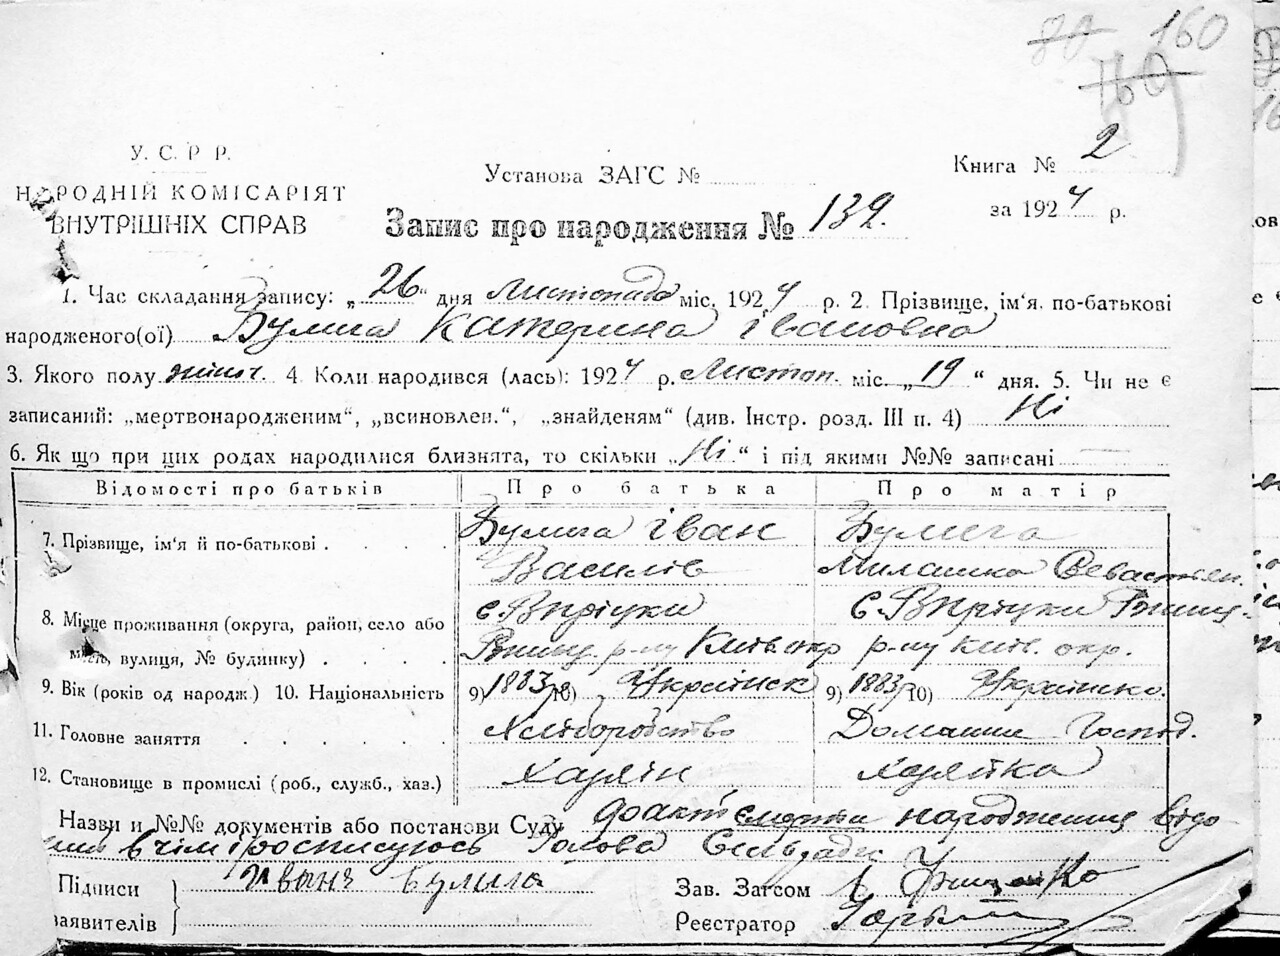 80 160
160
У. С. Р Р.
НАРОДНІЙ КОМІСАРІЯТ
ВНУТРІШНІХ СПРАВ
Установа ЗАГС №
Книга № 2
за 1924 р.
Запис про народження № 139.
1. Час складання запису: „26“ дня Листопада міс. 1924 р. 2. Прізвище, ім'я, по-батькові
народженого(ої) Булига Катерина Івановна
3. Якого полу жіноч. 4. Коли народився (лась): 1924 р. Листоп. міс. „19“ дня. 5. Чи не є
записаний: „мертвонародженим“, „всиновлен.“, „знайденям“ (див. Інстр. розд. III п. 4) Ні
6. Як що при цих родах народилися близнята, то скільки „Ні“ і під якими №№ записані
Відомості про батьків Про батька Про матір
7. Прізвище, ім'я й по-батькові Булига Іван Булига
Василів Милашка Севастьян.
8. Місце проживання (округа, район, село або с Виріцки с Виріцки
місто, вулиця, № будинку) р-ну Київ окр р-ну Київ. окр.
9. Вік (років од народж.) 10. Національність 9) 1883 10) Украінск 9) 1883 10) Украінка.
11. Головне заняття Хліборобство Домашнє Господ.
12. Становище в промислі (роб., служб., хаз.) Хазяін Хазяйка
Назви и №№ документів або постанови Суду до акт смерти народження
в чім і росписуюсь Голова Сельради
Підписи Иванъ Булига Зав. Загсом
заявителів Реєстратор